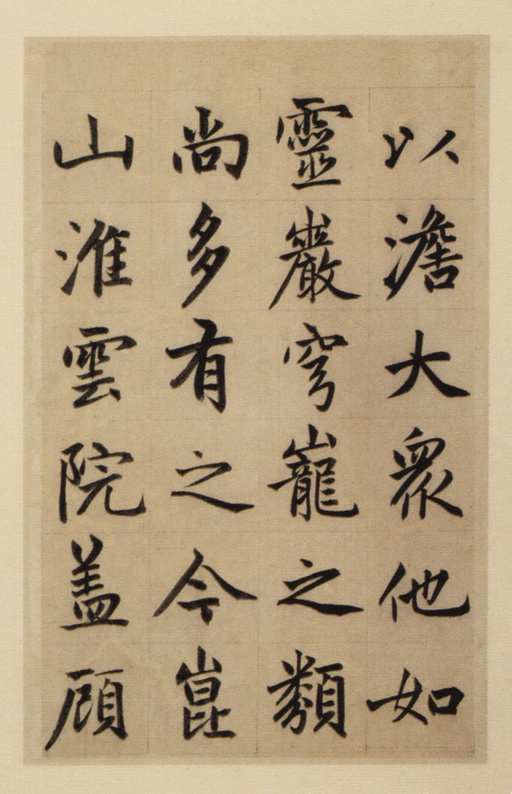 以澹大衆他如
靈巖穹巃之類
尚多有之今崑
山淮雲院盖顧